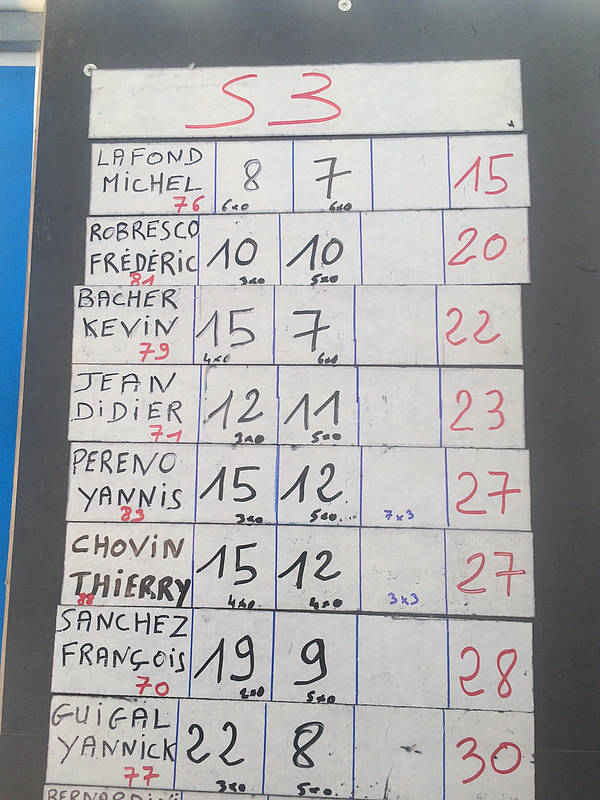 S3
LAFOND
MICHEL 8 7 15
76 6x0 6x0
ROBRESCO
FRÉDÉRIC 10 10 20
81 3x0 5x0
BACHER
KEVIN 15 7 22
79 4x0 6x0
JEAN
DIDIER 12 11 23
71 3x0 5x0
PERENO
YANNIS 15 12 27
83 3x0 5x0 7x3
CHOVIN
THIERRY 15 12 27
88 4x0 4x0 3x3
SANCHEZ
FRANÇOIS 19 9 28
70 2x0 5x0
GUIGAL
YANNICK 22 8 30
77 3x0 5x0